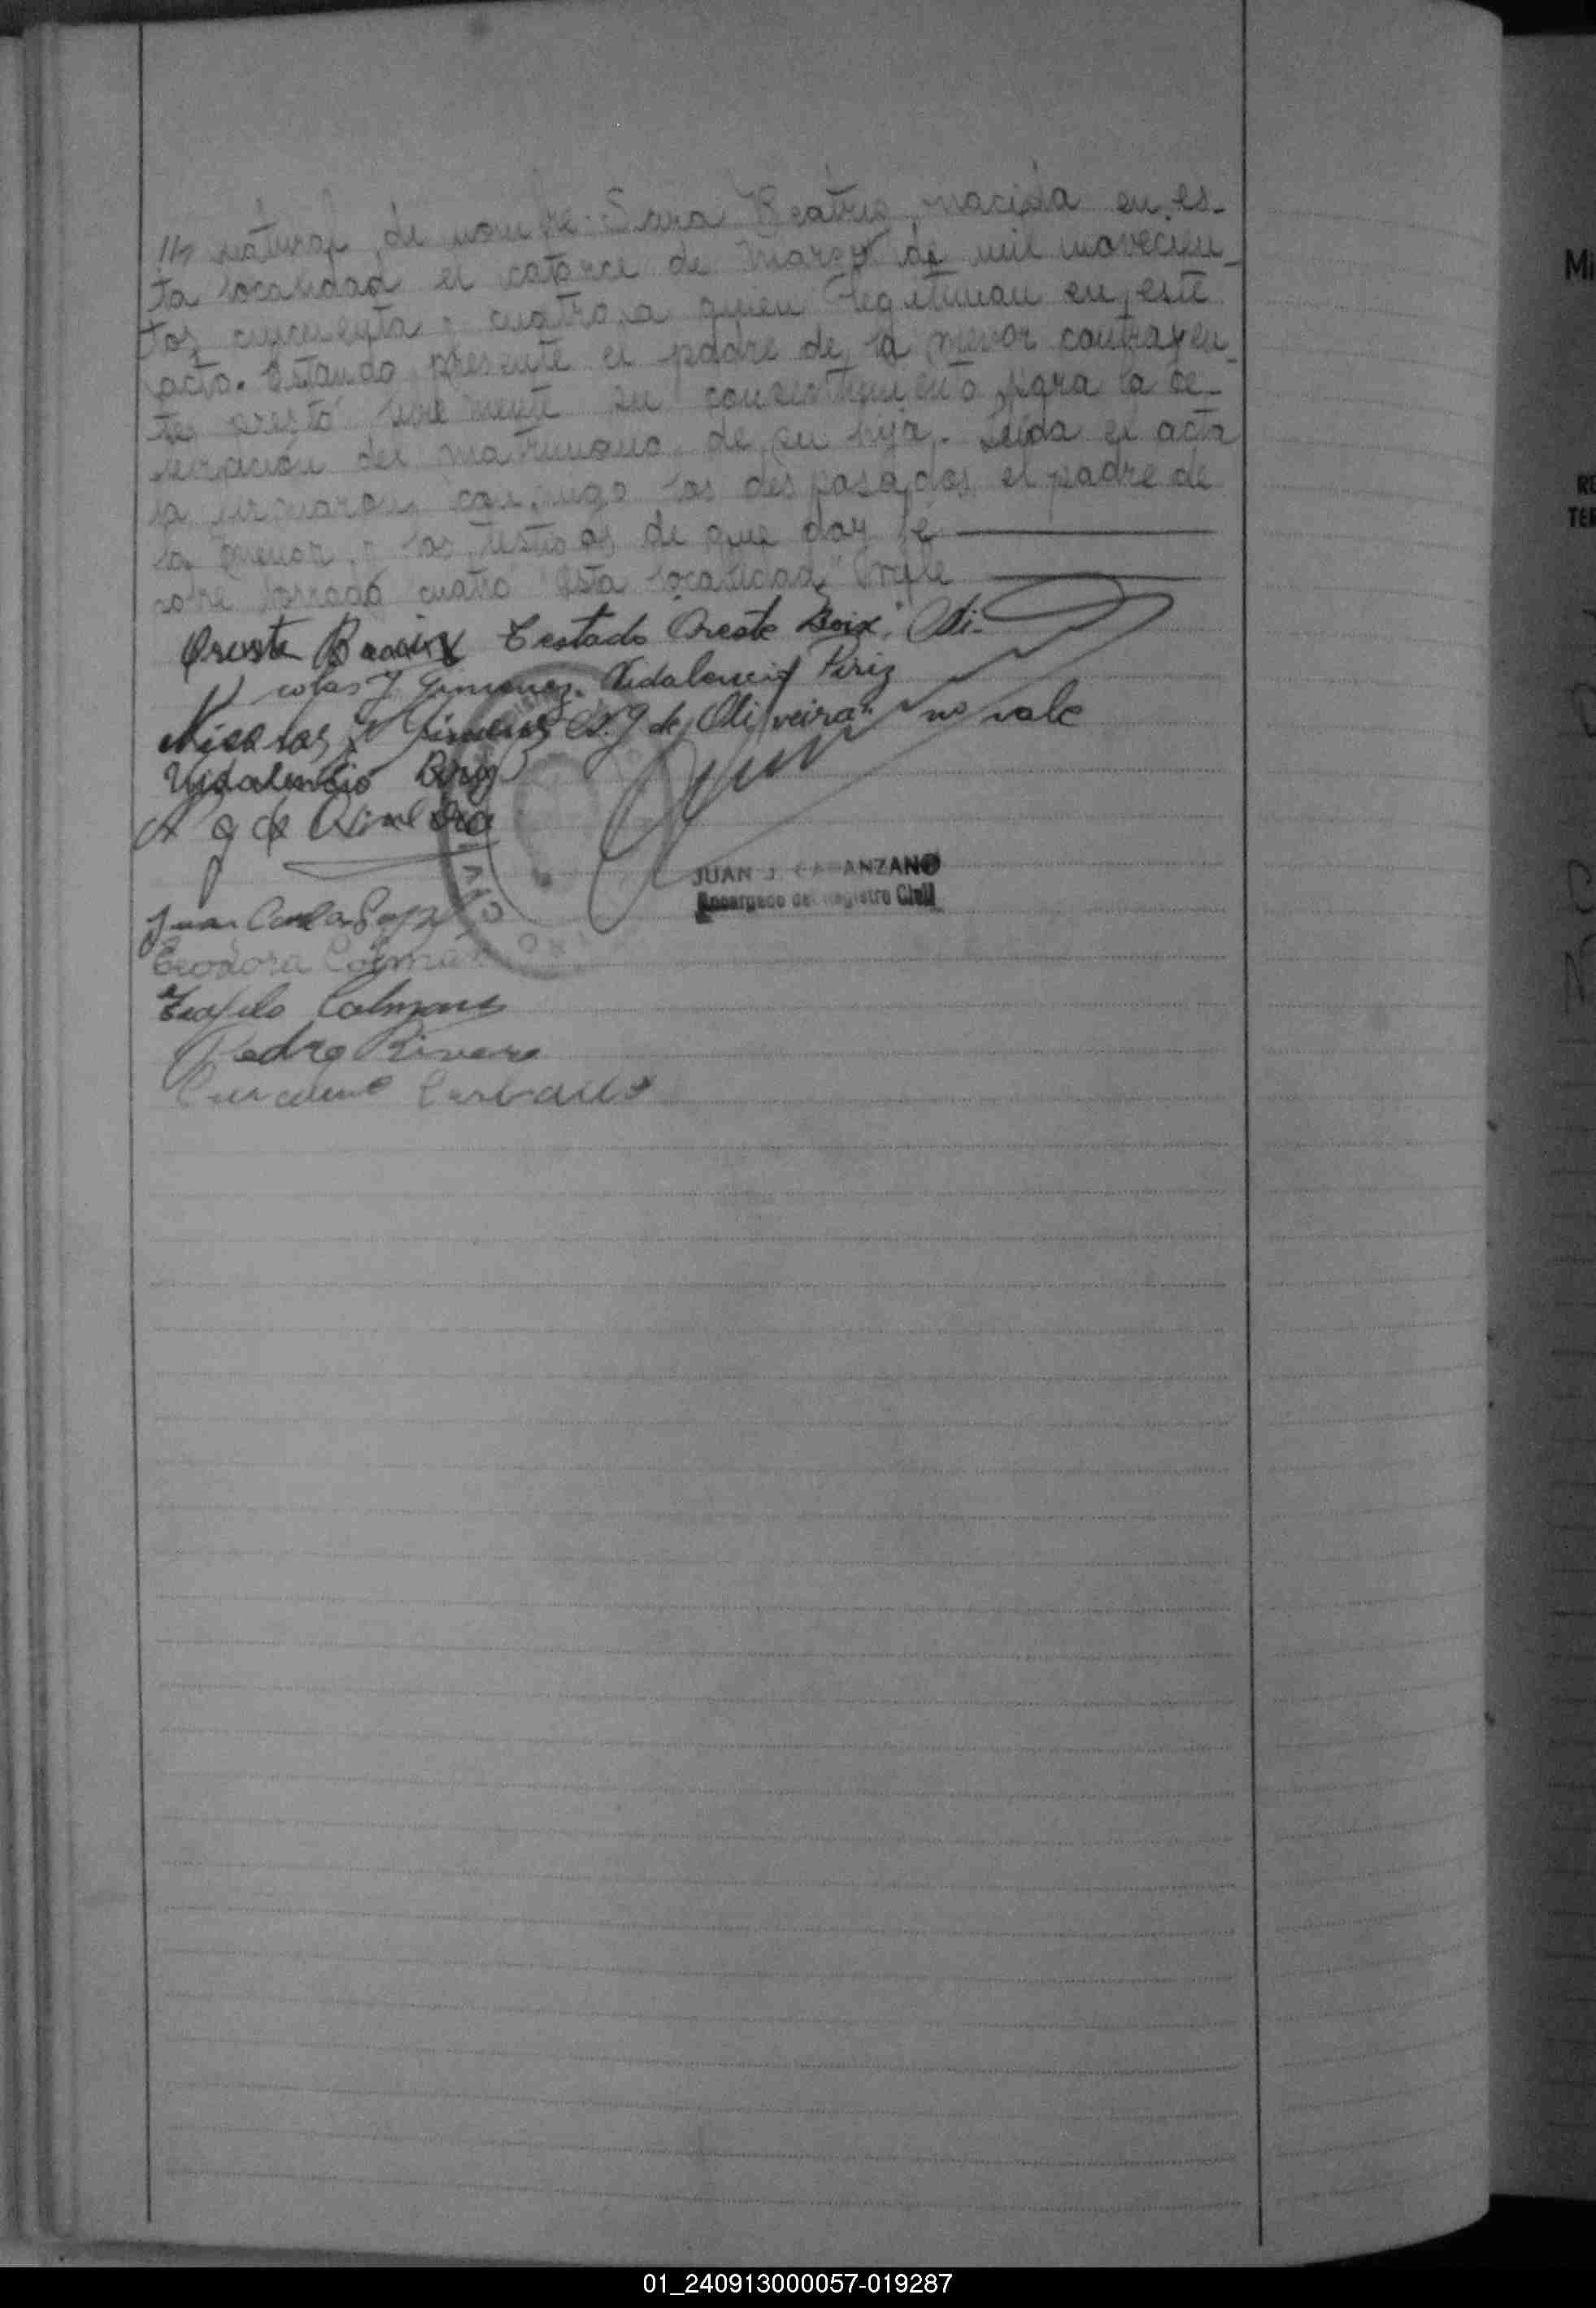 natural de nombre Sara Beatriz nacida en es-
ta localidad el catorce de Marzo de mil novecien-
tos cincuenta y cuatro, a quien legitiman en este
acto. Estando presente el padre de la menor contrayen-
te, prestó libremente su consentimiento para la ce-
lebración del matrimonio de su hija. Leída el acta
la firmaron conmigo los desposados, el padre de
la menor y los testigos de que doy fé
sobre borrado cuatro "esta localidad" vale
Oreste Testado "Oreste Boix" "Ni-
colas J Gimenez. Vidalencio Piriz
Nicolas J Jimenez A. g de Oliveira" no vale
Vidalencio Piriz
A g de Oliveira
JUAN J. ANZANO
Encargado del Registro Civil
Juan Carlos
Teodora Colman
Teofilo Colman
Pedro Rivero
Carballo
Mi
RE
TER
01_240913000057-019287